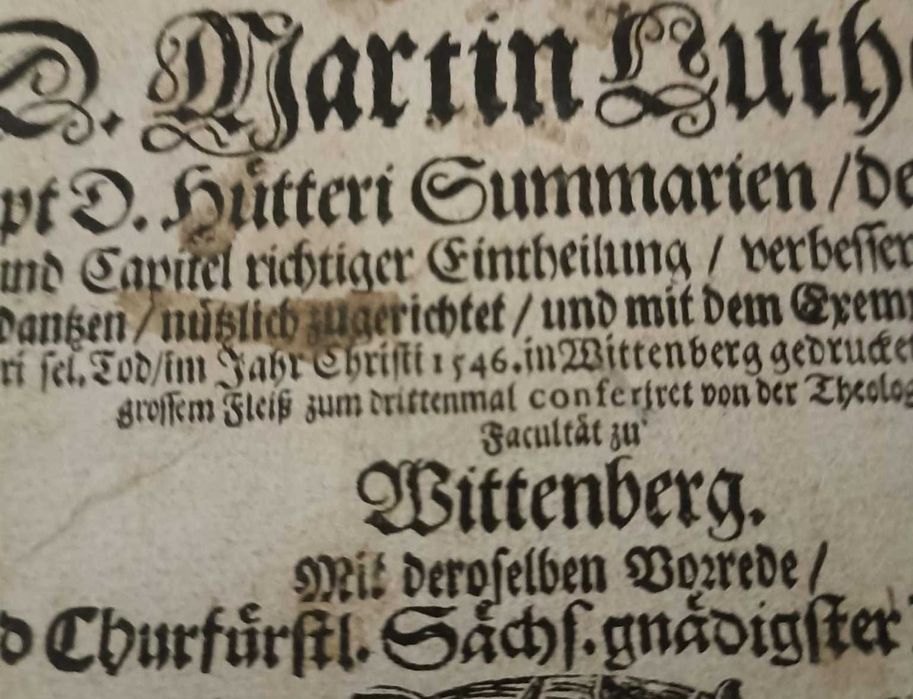 D. Martin Luth
pt D. Hütteri Summarien / de
und Capitel richtiger Eintheilung / verbesser
dantzen / nützlich zugerichtet / und mit dem Exem
ri sel. Tod / im Jahr Christi 1546. in Wittenberg gedrucke
grossem Fleiß zum drittenmal conferiret von der Theolog
Facultät zu
Wittenberg.
Mit deroselben Vorrede /
d Churfürstl. Sächs. gnädigster